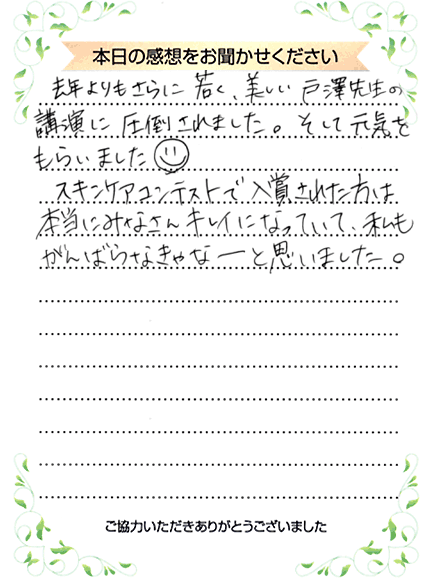 本日の感想をお聞かせください
去年よりもさらに若く、美しい戸澤先生の
講演に圧倒されました。そして元気を
もらいました
スキンケアコンテストで入賞された方は
本当にみなさんキレイになっていて、私も
がんばらなきゃなーと思いました。
ご協力いただきありがとうございました